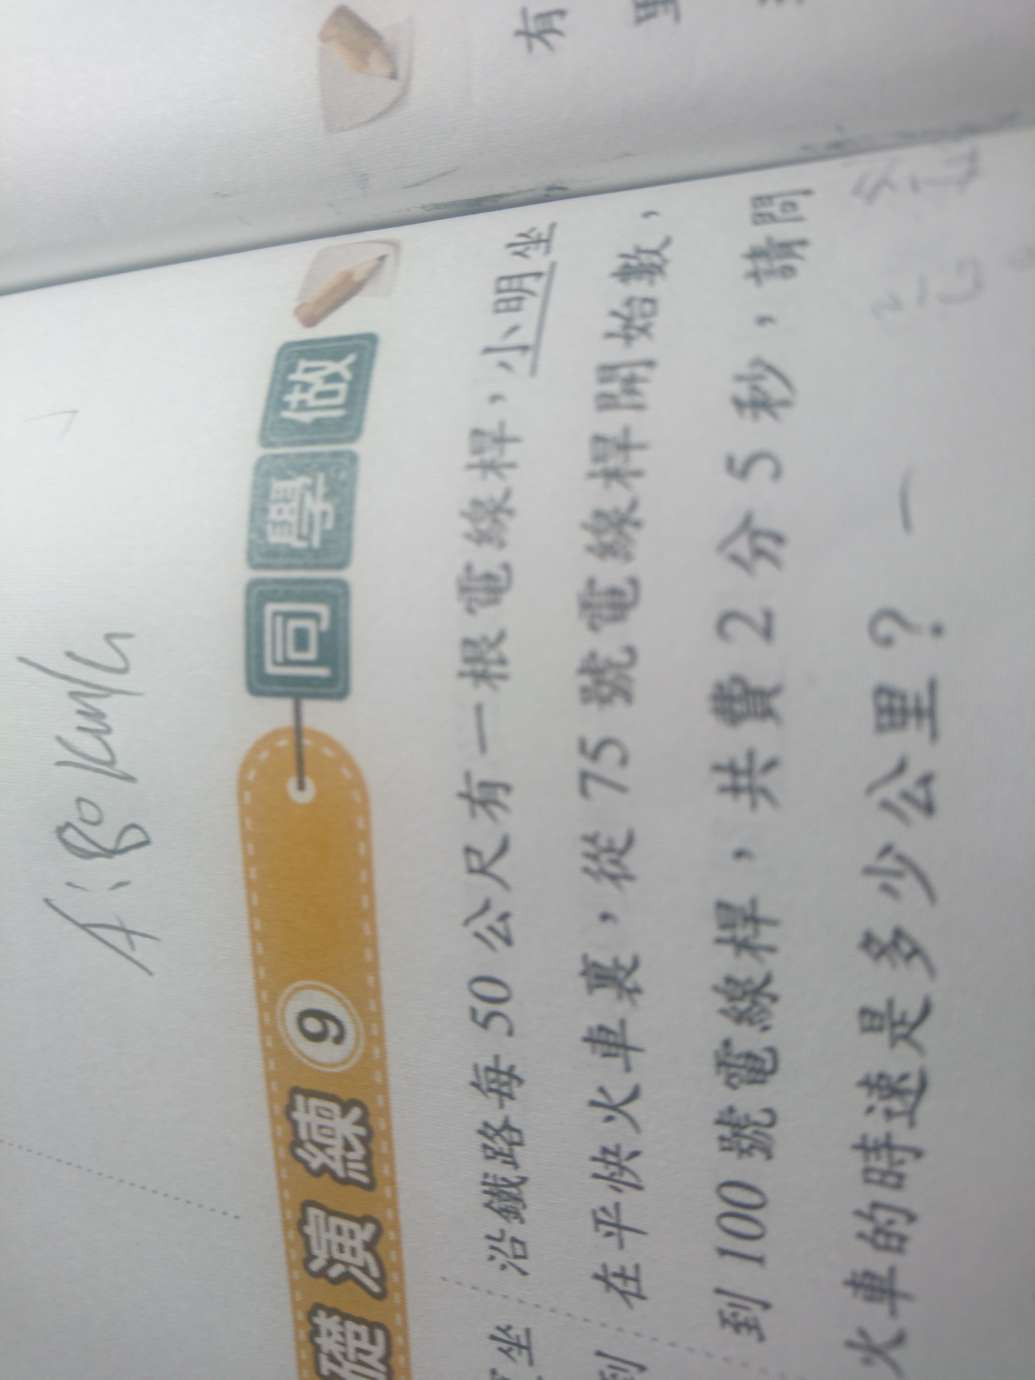 A：80 km/h
礎演練 9 同學做
沿鐵路每 50 公尺有一根電線桿，小明坐
在平快火車裏，從 75 號電線桿開始數，
到 100 號電線桿，共費 2 分 5 秒，請問
火車的時速是多少公里？
坐
到
有
里